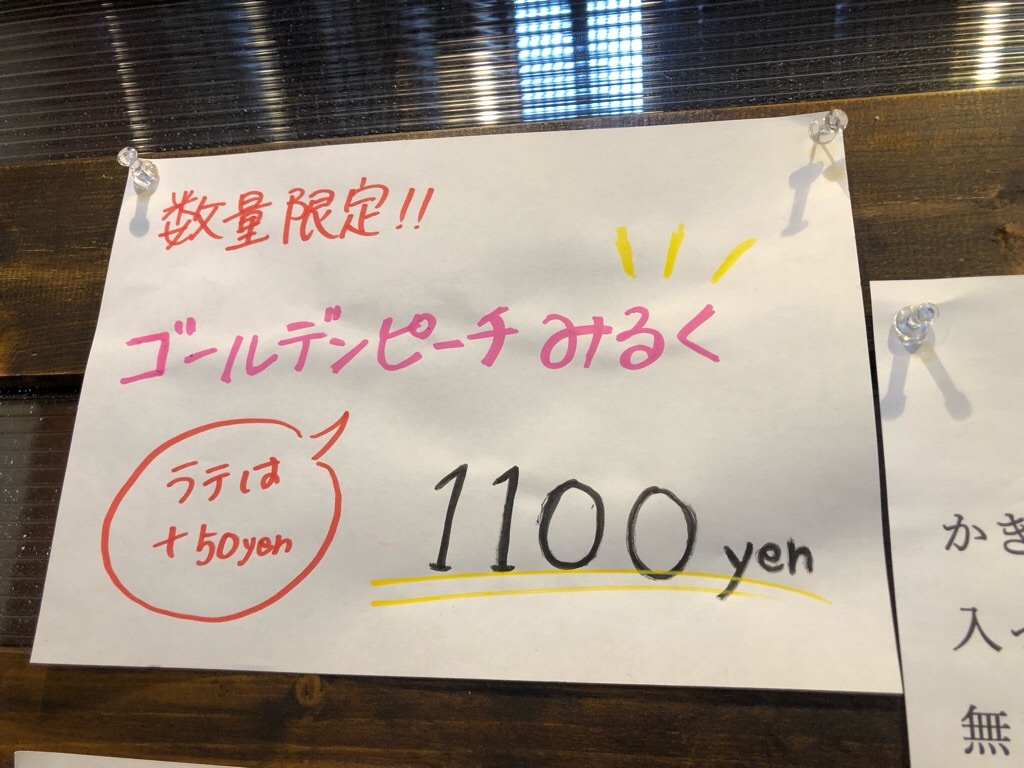 数量限定!!
ゴールデンピーチみるく
ラテは
+50yen
1100 yen
かき
入
無